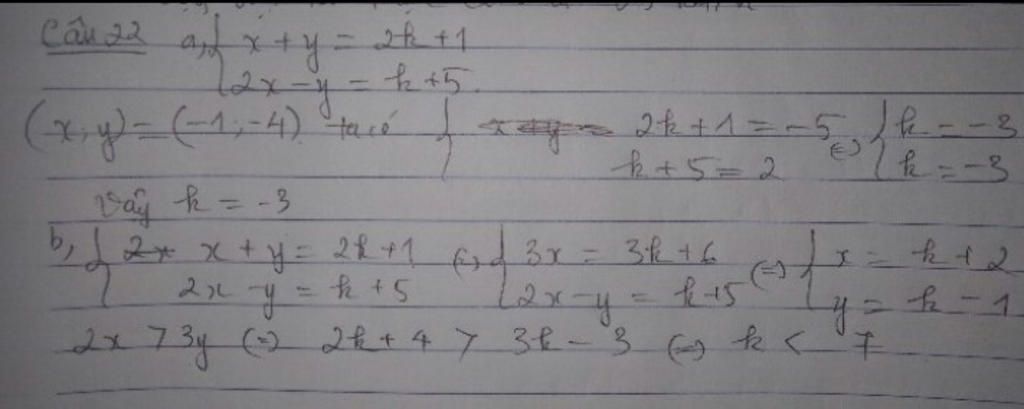 Câu 22 a, { x + y = 2k + 1
2x - y = k + 5.
(x, y) = (-1; -4) ta có { 2k + 1 = -5 (=) { k = -3
k + 5 = 2 k = -3
Vậy k = -3
b, { x + y = 2k + 1 (=) { 3x = 3k + 6 (=) { x = k + 2
2x - y = k + 5 2x - y = k + 5 y = k - 1
2x > 3y (=) 2k + 4 > 3k - 3 (=) k < 7